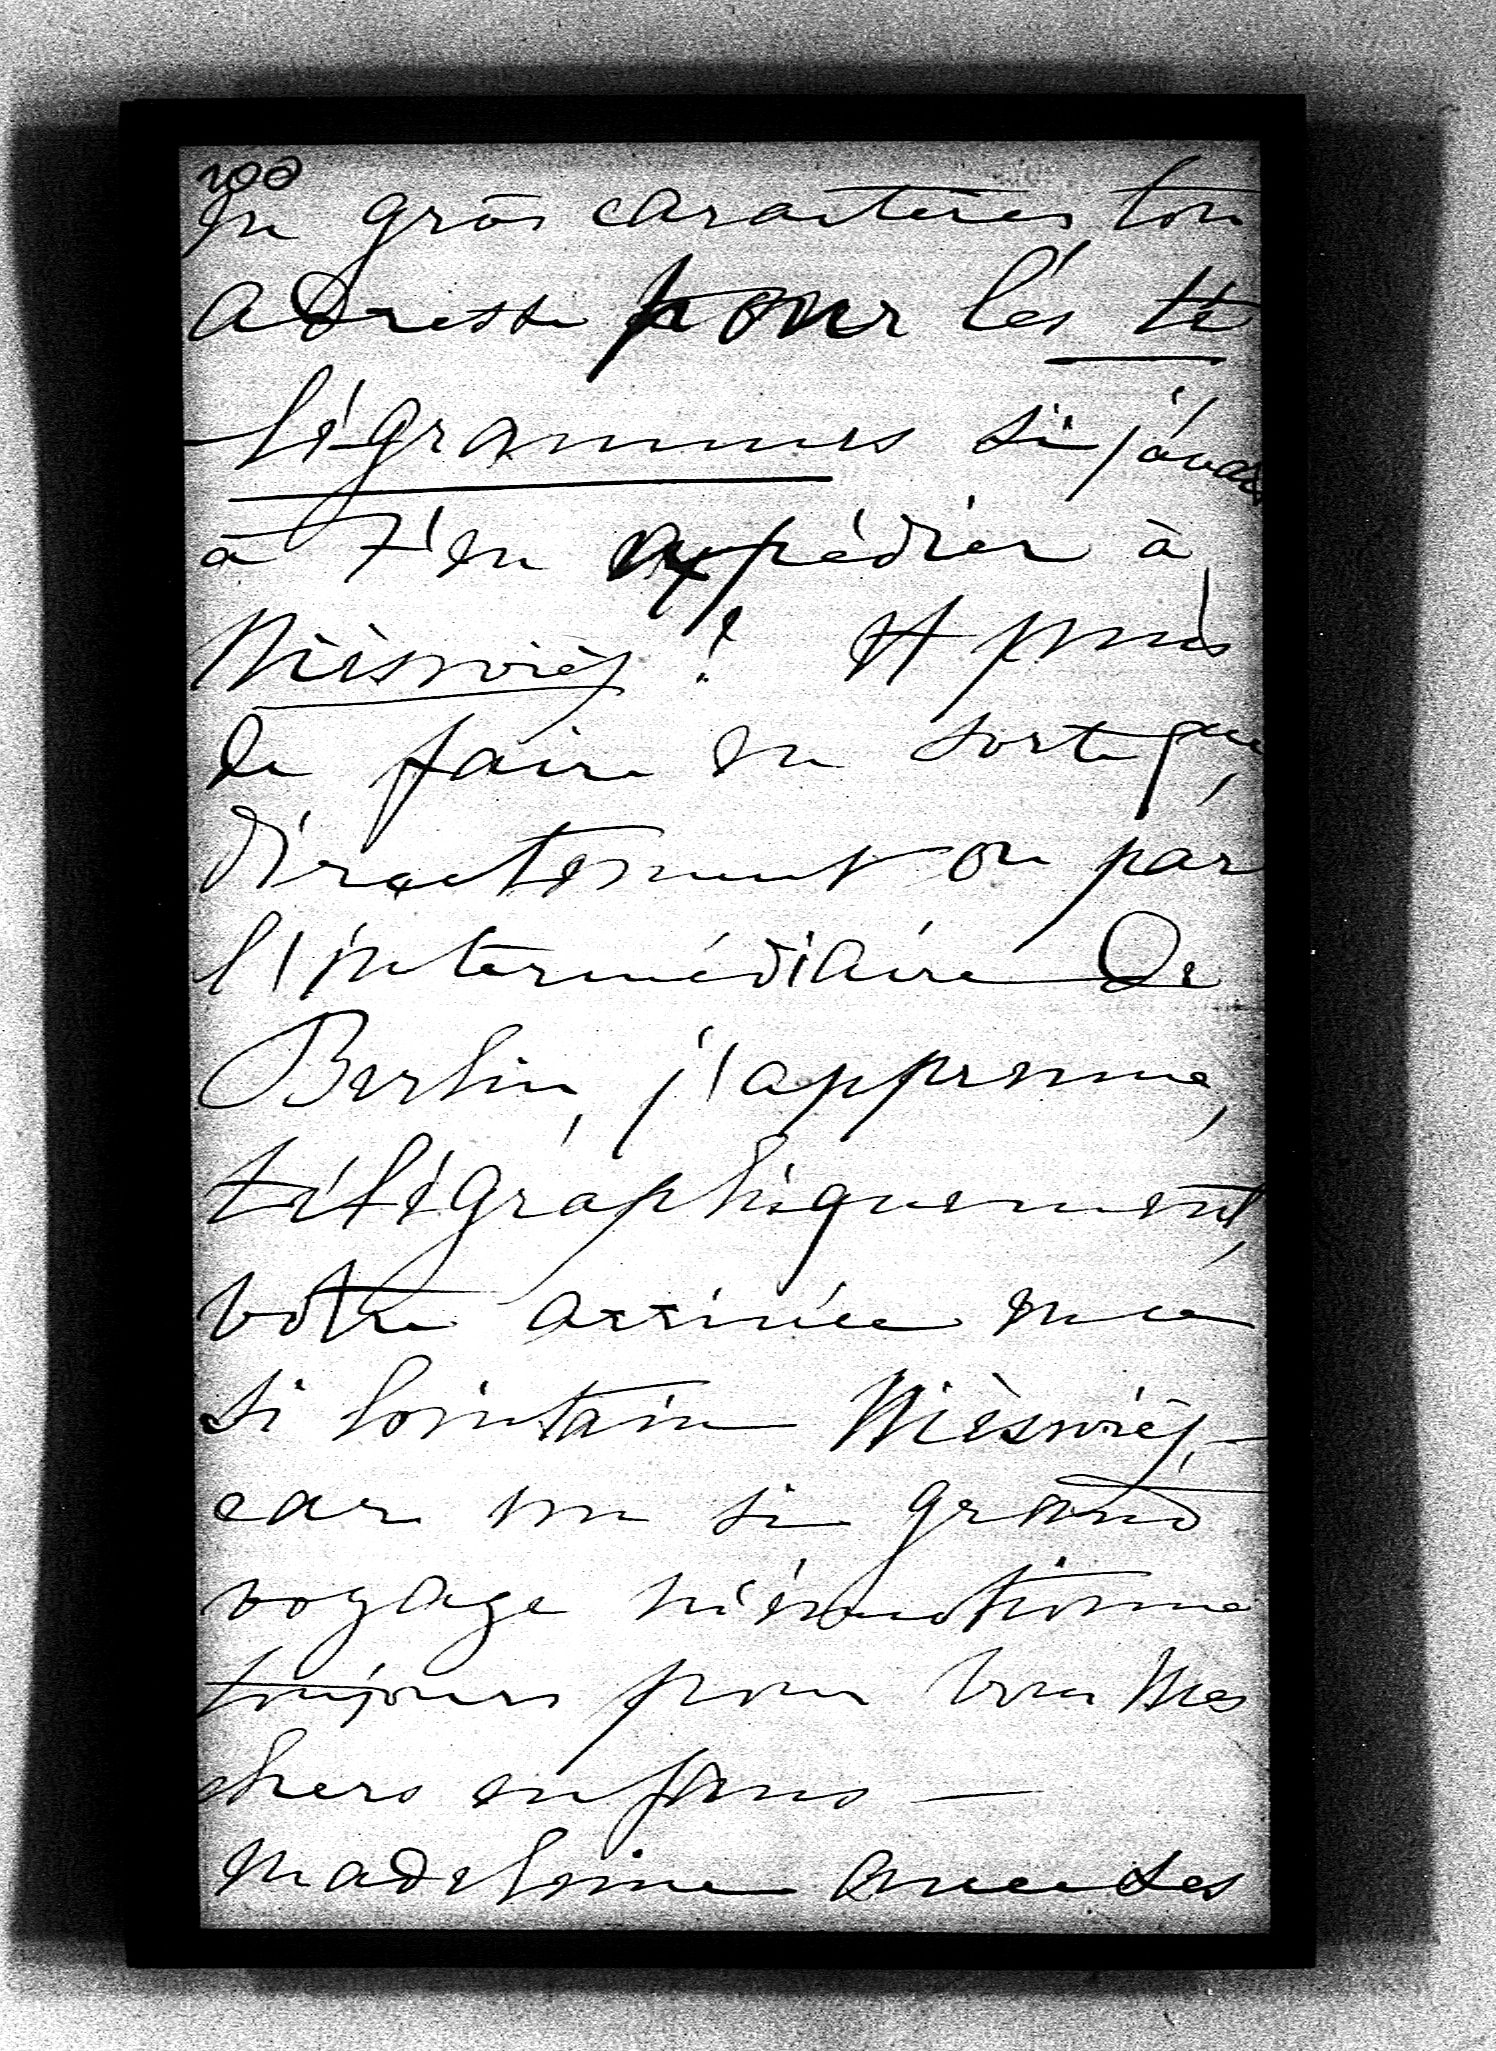 100
en gros caractères ton
adresse pour les té
légrammes si j'avais
à t'en expédier à
Nièswiéj? Et puis
de faire en sorte que,
directement ou par
l'intermédiaire de
Berlin, j'apprenne,
télégraphiquement,
votre arrivée en ce
si lointain Nièswiéj,
car un si grand
voyage m'émotionne
toujours pour vous mes
chers enfans —
Madeleine avec ses